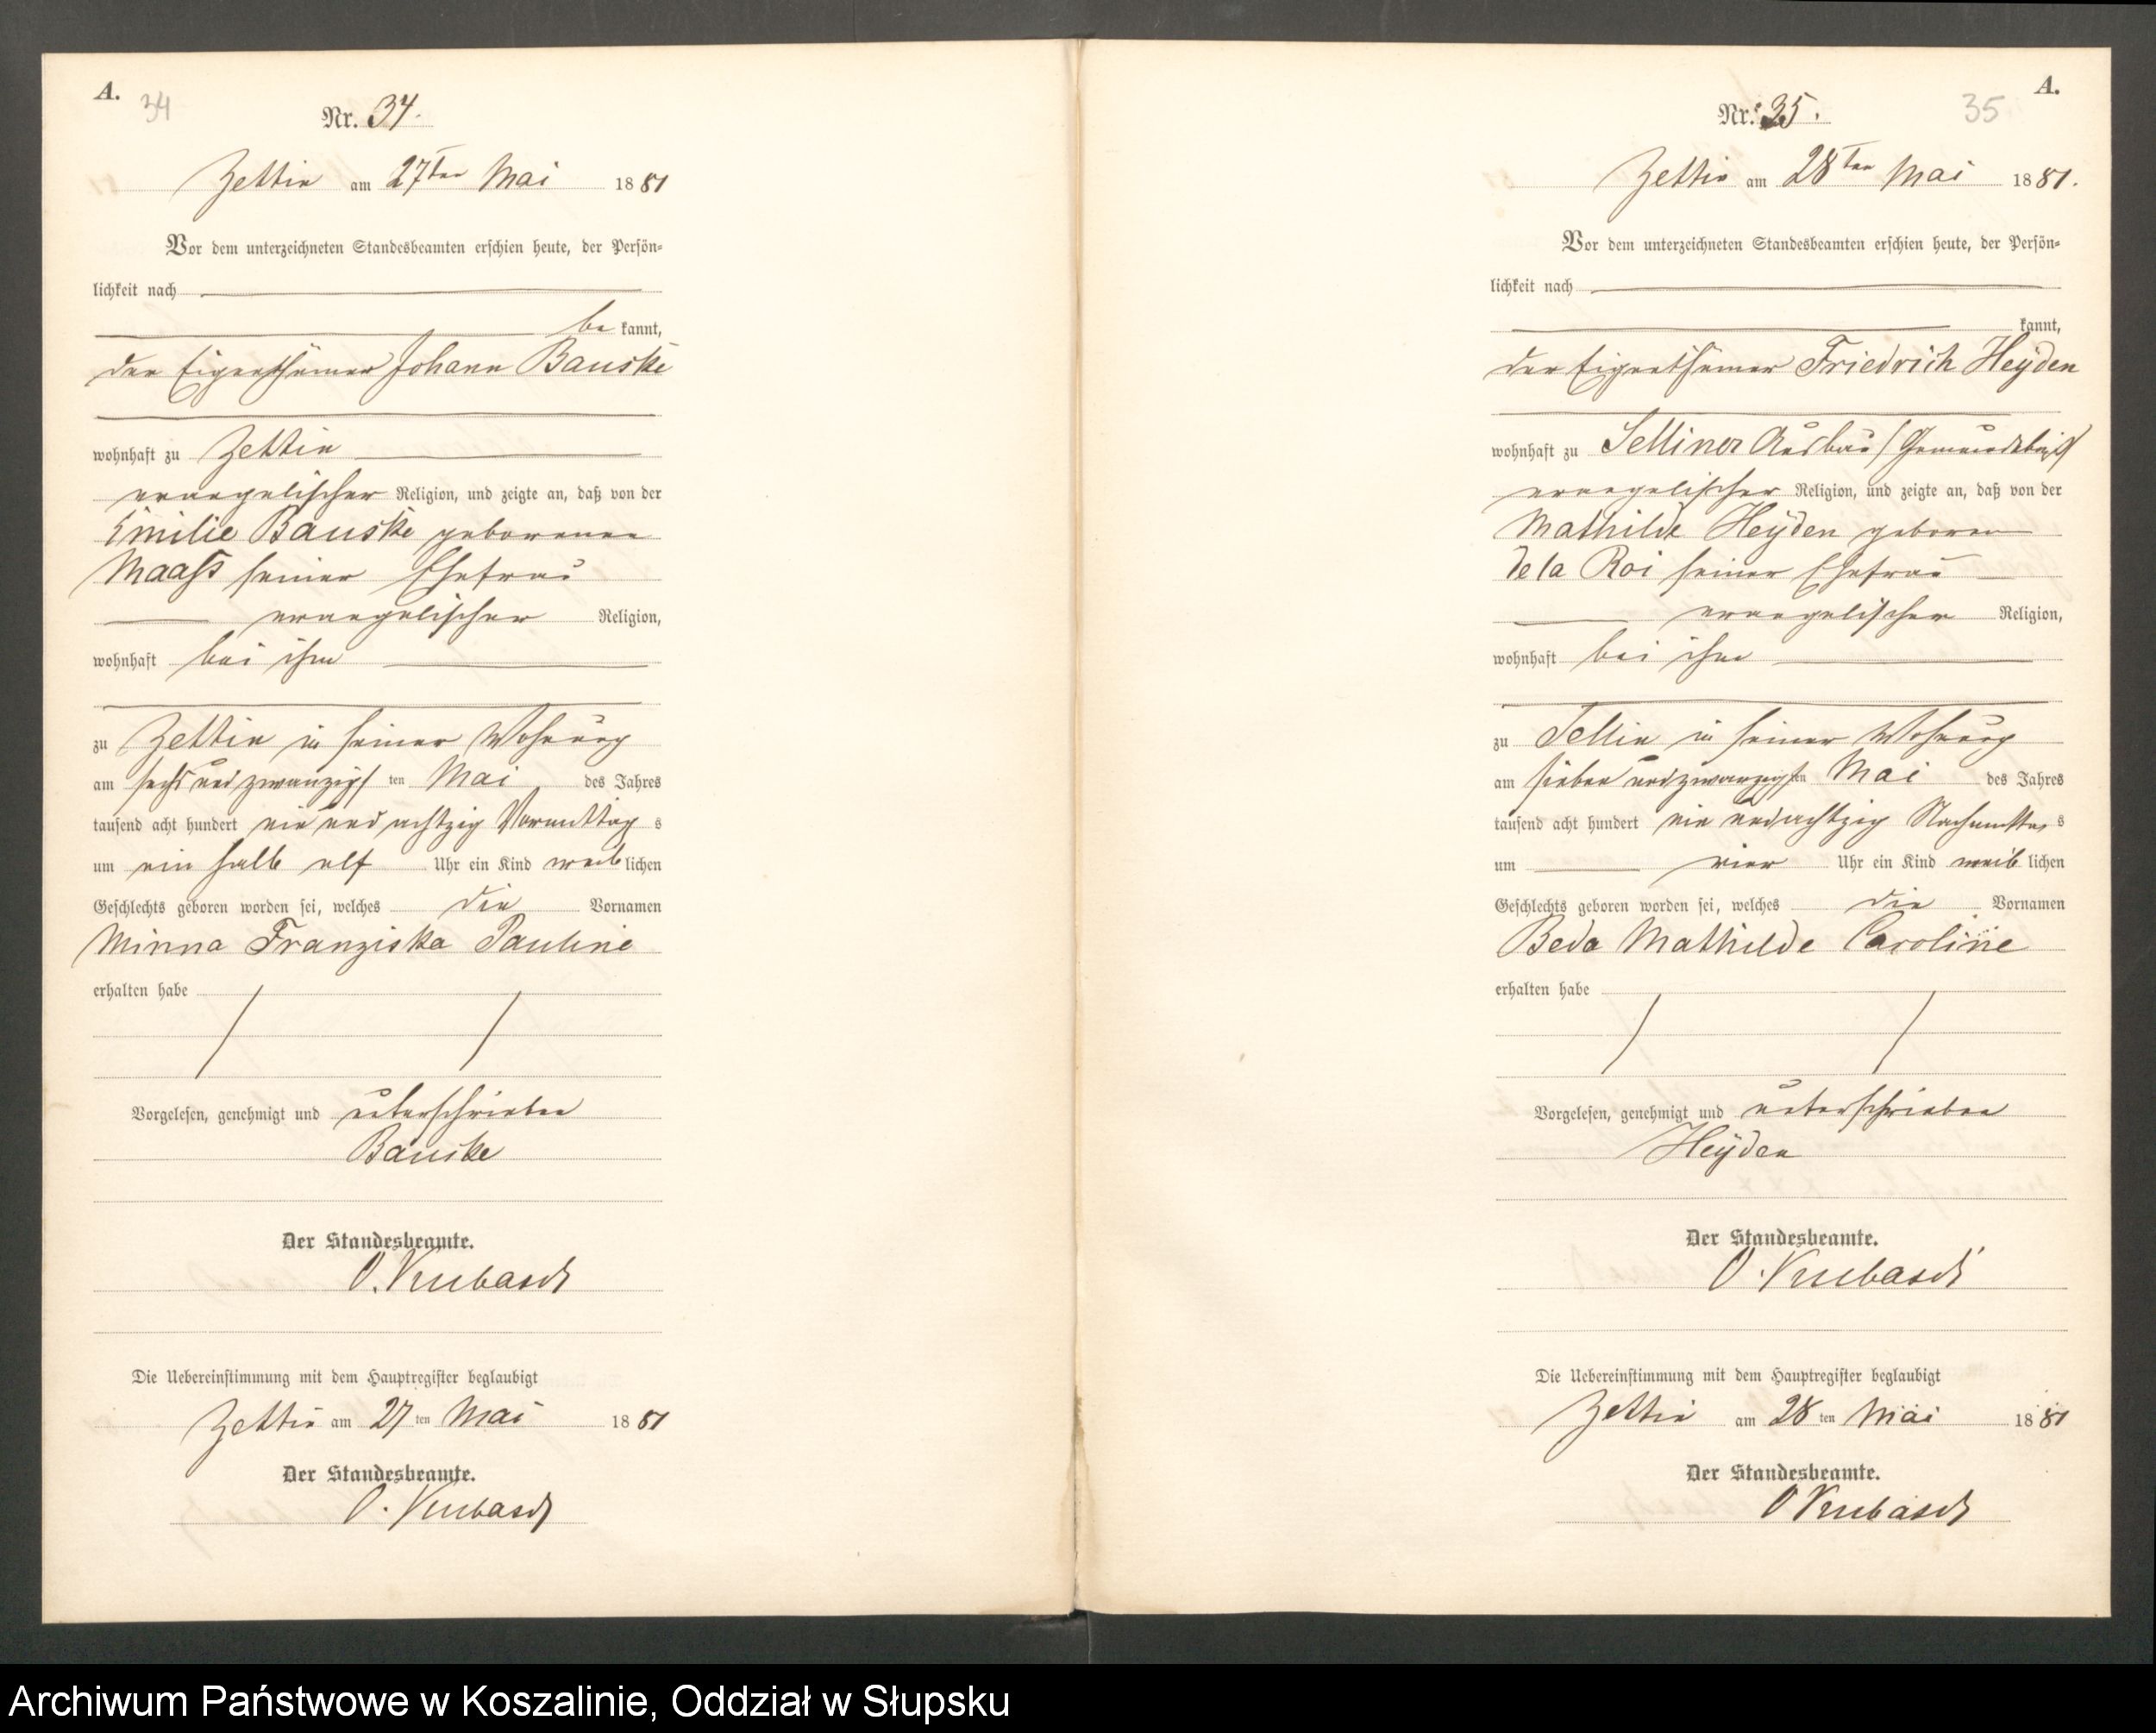 A.
34
Nr. 34.
Zettin am 27ten Mai 1881
Vor dem unterzeichneten Standesbeamten erschien heute, der Persön-
lichkeit nach
be kannt,
der Eigenthümer Johann Bauske
wohnhaft zu Zettin
evangelischer Religion, und zeigte an, daß von der
Emilie Bauske geborenen
Maaß seiner Ehefrau
evangelischer Religion,
wohnhaft bei ihm
zu Zettin in seiner Wohnung
am sechs und zwanzigs ten Mai des Jahres
tausend acht hundert ein und achtzig Vormittag s
um ein halb elf Uhr ein Kind weib lichen
Geschlechts geboren worden sei, welches die Vornamen
Minna Franziska Pauline
erhalten habe
Vorgelesen, genehmigt und unterschrieben
Bauske
Der Standesbeamte.
O. Krubasch
Die Uebereinstimmung mit dem Hauptregister beglaubigt
Zettin am 27 ten Mai 1881
Der Standesbeamte.
O. Krubasch
A.
35
Nr. 35.
Zettin am 28ten Mai 1881.
Vor dem unterzeichneten Standesbeamten erschien heute, der Persön-
lichkeit nach
kannt,
der Eigenthümer Friedrich Heyden
wohnhaft zu Selliner Ausbau
evangelischer Religion, und zeigte an, daß von der
Mathilde Heyden geboren
de la Roi seiner Ehefrau
evangelischer Religion,
wohnhaft bei ihm
zu Sellin in seiner Wohnung
am sieben und zwanzigsten Mai des Jahres
tausend acht hundert ein und achtzig Nachmittags
um vier Uhr ein Kind weib lichen
Geschlechts geboren worden sei, welches die Vornamen
Beda Mathilde Caroline
erhalten habe
Vorgelesen, genehmigt und unterschrieben
Heyden
Der Standesbeamte.
O. Krubasch
Die Uebereinstimmung mit dem Hauptregister beglaubigt
Zettin am 28 ten Mai 1881
Der Standesbeamte.
O Krubasch
Archiwum Państwowe w Koszalinie, Oddział w Słupsku